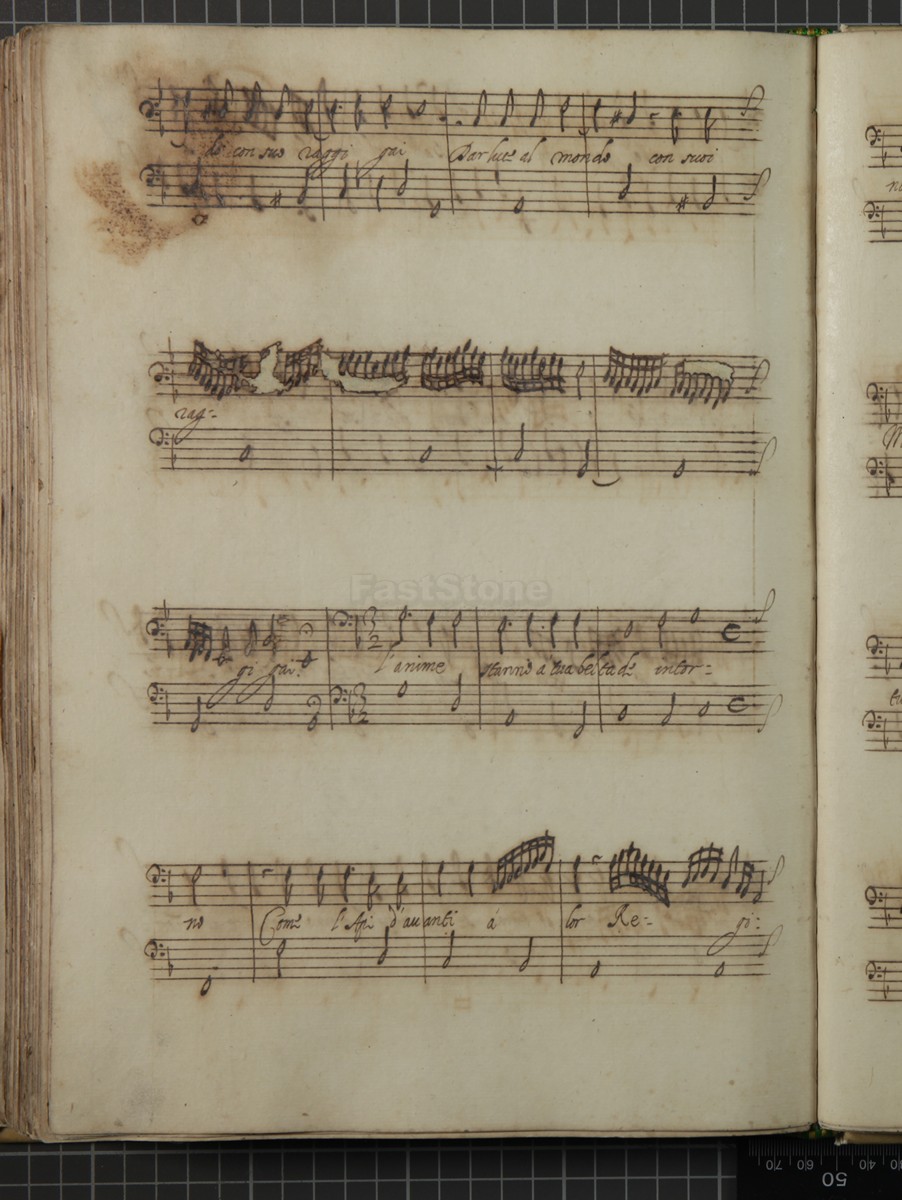 do con suo raggi gai Dar luce al mondo con suoi
rag-
FastStone
gi gai. l'anime stanno a tua beltade intor-
no Come l'Api d'auanti á lor Re- gi-
50
60 70